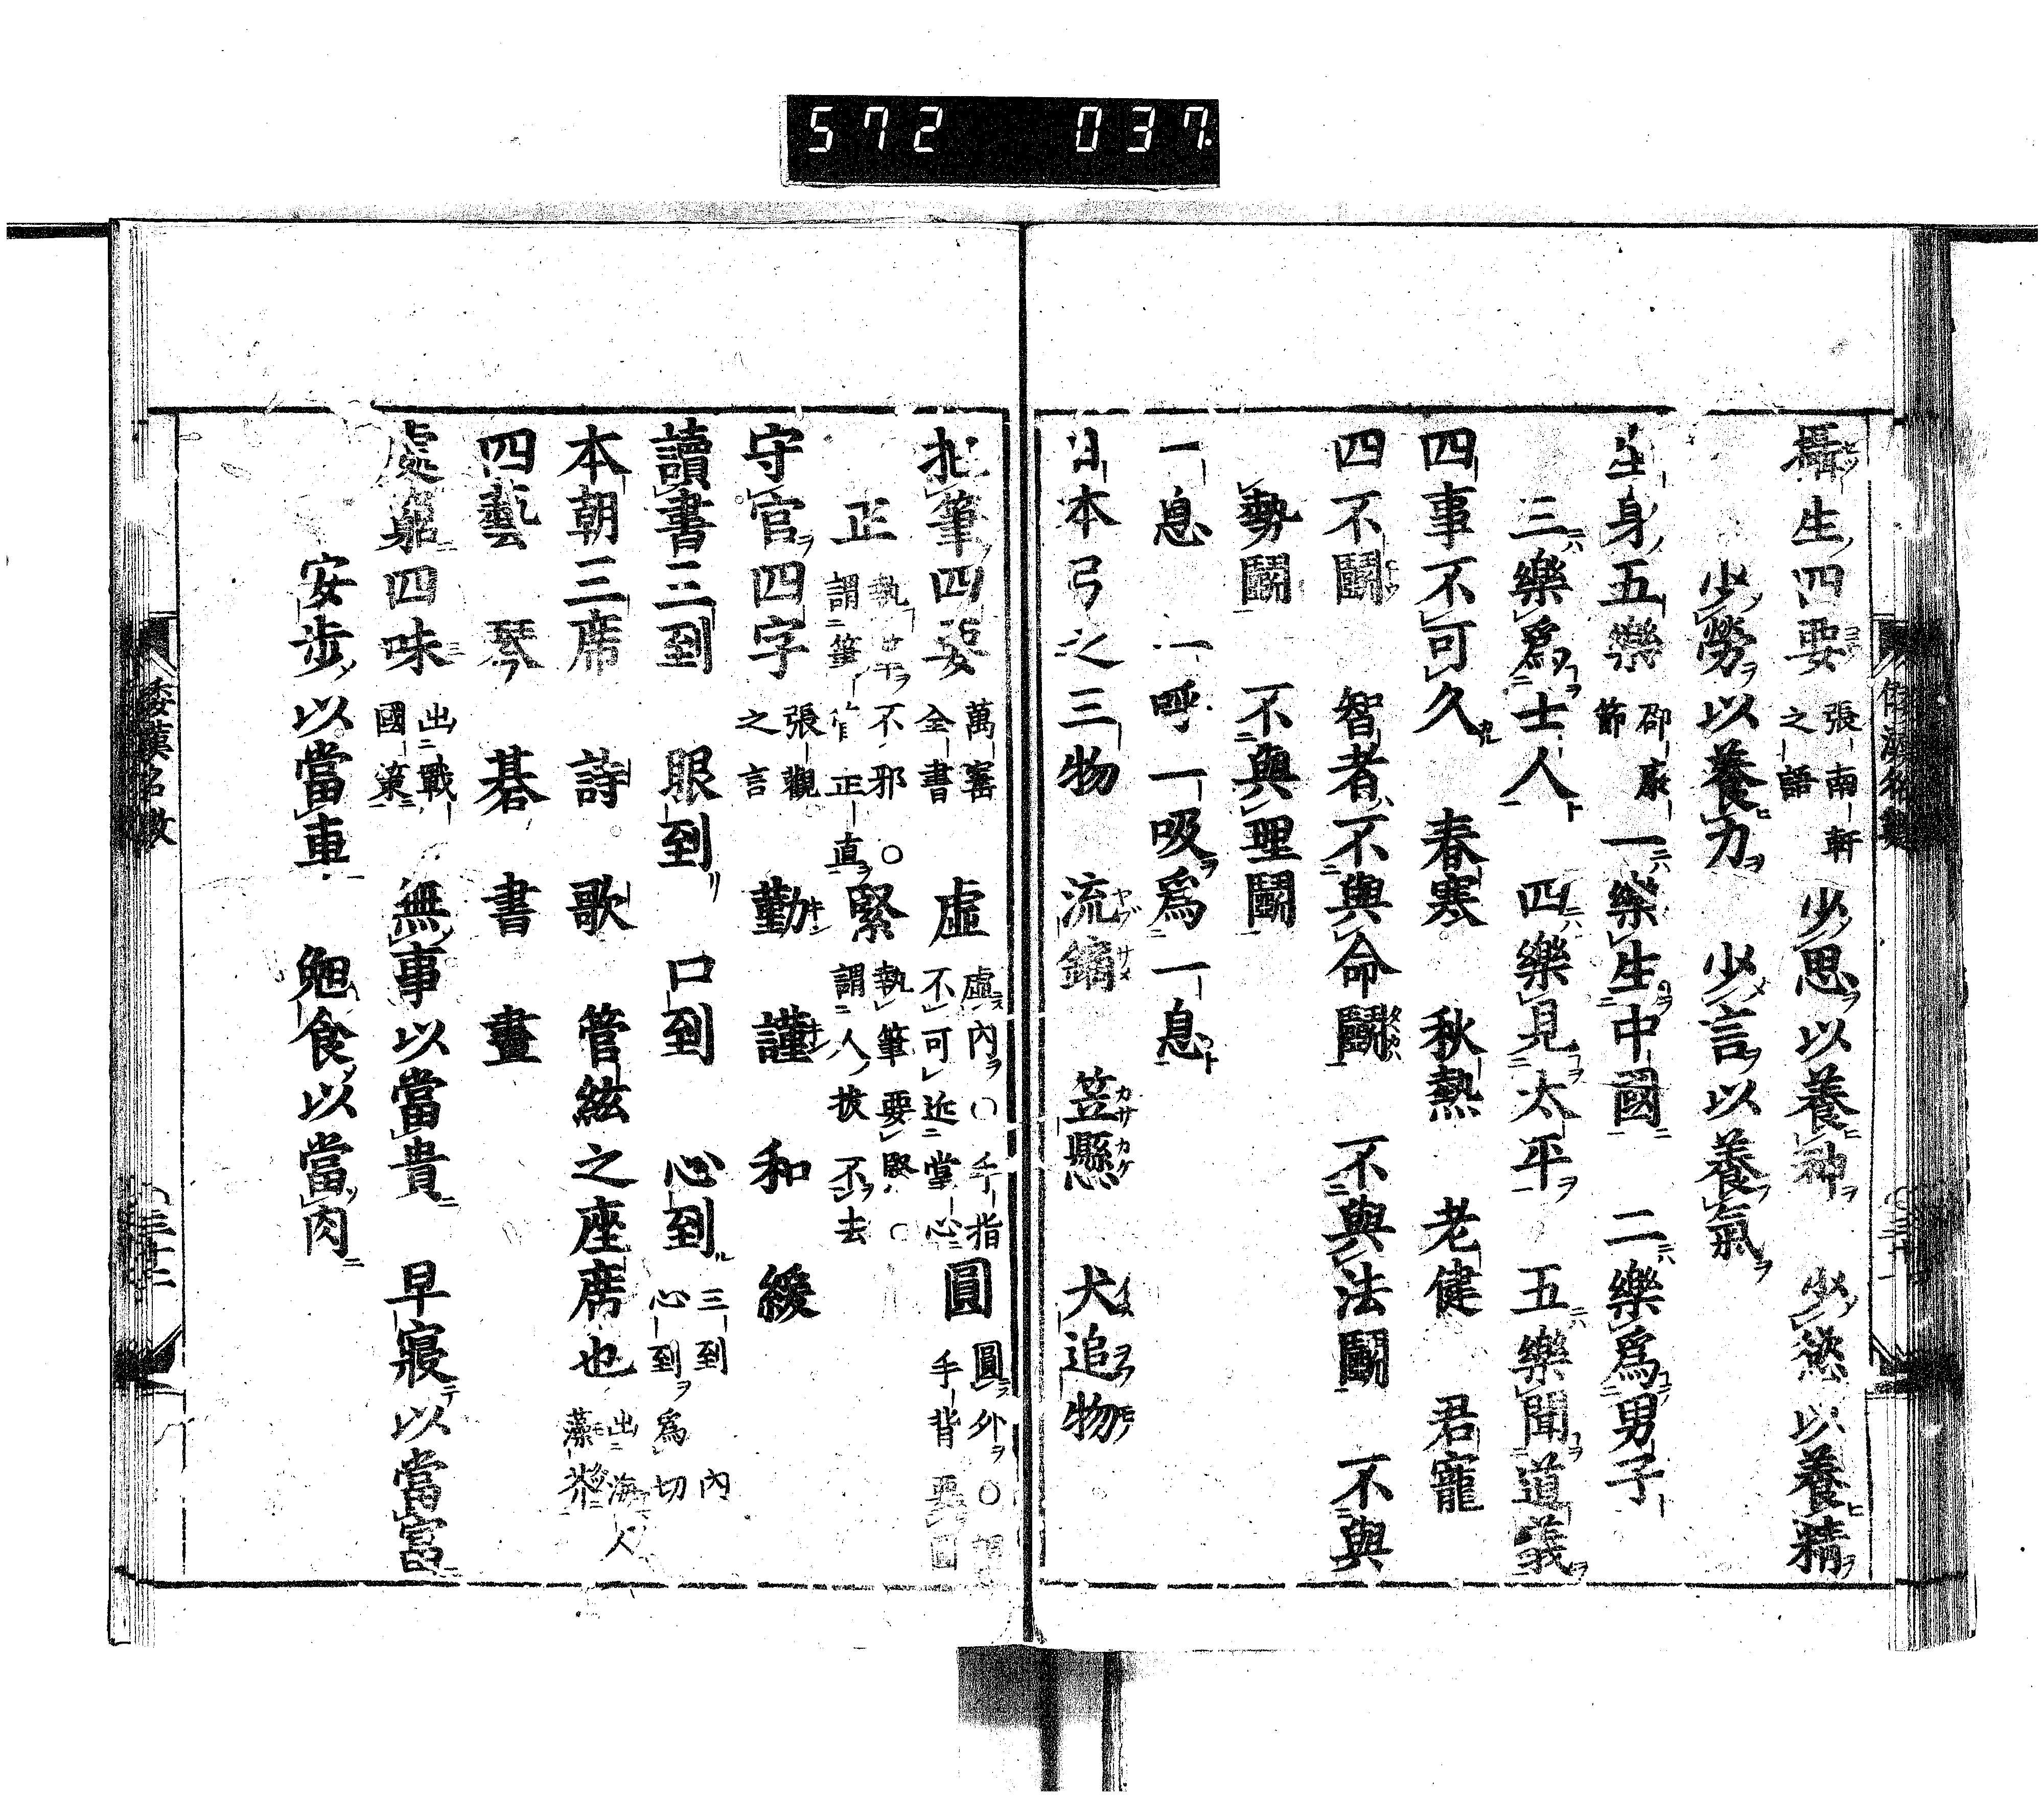 572 037
攝生四要 張南軒之語 少思以養神 少慾以養精
少勞以養力 少言以養氣
生身五樂 邵康節 一樂生中國 二樂爲男子
三樂爲士人 四樂見太平 五樂聞道義
四事不可久 春寒 秋熱 老健 君寵
四不鬪 智者不與命鬪 不與法鬪 不與
勢鬪 不與理鬪
一息 一呼一吸爲一息
日本弓之三物 流鏑 笠懸 犬追物
把筆四要 萬寳全書 虛 虛内○手指不可近掌心 圓 圓外○手背要圓
正 執筆不邪○謂筆管正直 緊 執筆要緊○謂人拔不去
守官四字 張觀之言 勤 謹 和 緩
讀書三到 眼到 口到 心到 三到内心到爲切
本朝三席 詩 歌 管絃之座席也 出海人藻芥
四藝 琴 碁 書 畫
處窮四味 出戰國策 無事以當貴 早寢以當富
安步以當車 晩食以當肉
倭漢名數 三十二